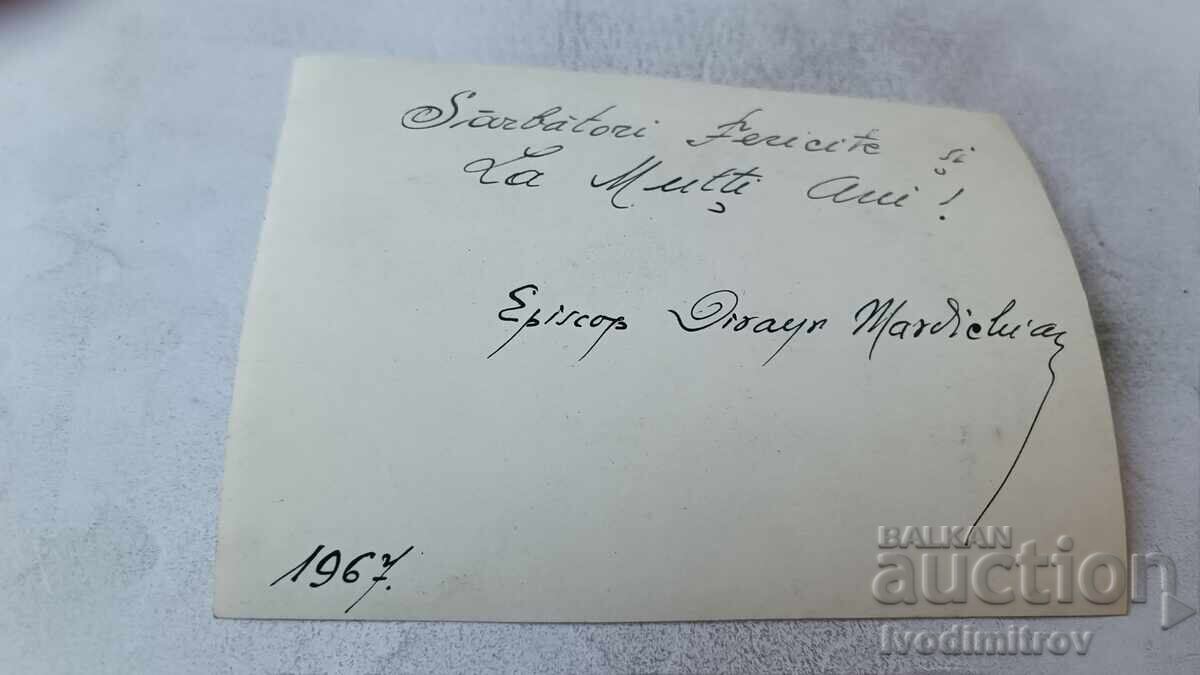 Sărbători Fericite și
La Mulţi Ani!
Episcop Dirayr Mardichian
1967.
BALKAN
auction
Ivodimitrov